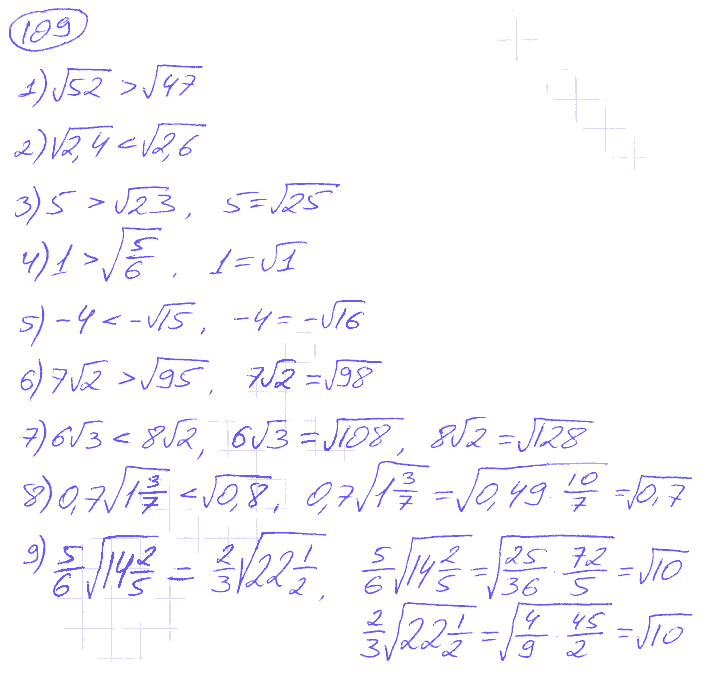 109
1) √52 > √47
2) √2,4 < √2,6
3) 5 > √23, 5 = √25
4) 1 > √(5/6), 1 = √1
5) -4 < -√15, -4 = -√16
6) 7√2 > √95, 7√2 = √98
7) 6√3 < 8√2, 6√3 = √108, 8√2 = √128
8) 0,7√(1 3/7) < √0,8, 0,7√(1 3/7) = √(0,49 · 10/7) = √0,7
9) 5/6 √(14 2/5) = 2/3 √(22 1/2), 5/6 √(14 2/5) = √(25/36 · 72/5) = √10
2/3 √(22 1/2) = √(4/9 · 45/2) = √10